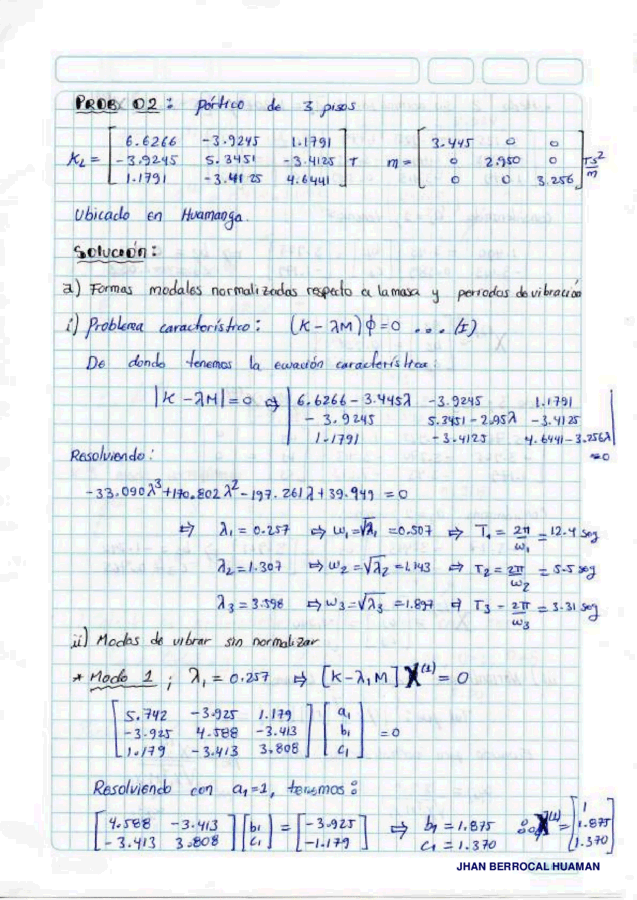 PROB 02: pórtico de 3 pisos
K_L = [ 6.6266 -3.9245 1.1791 ; -3.9245 5.3451 -3.4125 ; 1.1791 -3.4125 4.6441 ] T m = [ 3.445 0 0 ; 0 2.950 0 ; 0 0 3.256 ] Ts²/m
Ubicado en Huamanga.
Solución:
a) Formas modales normalizadas respecto a la masa y periodos de vibración
i) Problema característico: (K - λM)ϕ = 0 ... (I)
De donde tenemos la ecuación característica:
|K - λM| = 0 ⇒ | 6.6266 - 3.445λ -3.9245 1.1791 ; -3.9245 5.3451 - 2.95λ -3.4125 ; 1.1791 -3.4125 4.6441 - 3.256λ | = 0
Resolviendo:
-33.090λ³ + 170.802λ² - 197.261λ + 39.949 = 0
⇒ λ₁ = 0.257 ⇒ ω₁ = √λ₁ = 0.507 ⇒ T₁ = 2π/ω₁ = 12.4 seg
λ₂ = 1.307 ⇒ ω₂ = √λ₂ = 1.143 ⇒ T₂ = 2π/ω₂ = 5.5 seg
λ₃ = 3.598 ⇒ ω₃ = √λ₃ = 1.897 ⇒ T₃ = 2π/ω₃ = 3.31 seg
ii) Modos de vibrar sin normalizar
* Modo 1; λ₁ = 0.257 ⇒ [K - λ₁M] X⁽¹⁾ = 0
[ 5.742 -3.925 1.179 ; -3.925 4.588 -3.413 ; 1.179 -3.413 3.808 ] [ a₁ ; b₁ ; c₁ ] = 0
Resolviendo con a₁=1, tenemos:
[ 4.588 -3.413 ; -3.413 3.808 ] [ b₁ ; c₁ ] = [ -3.925 ; -1.179 ] ⇒ b₁ = 1.875 c₁ = 1.370 X⁽¹⁾ = [ 1 ; 1.875 ; 1.370 ]
JHAN BERROCAL HUAMAN